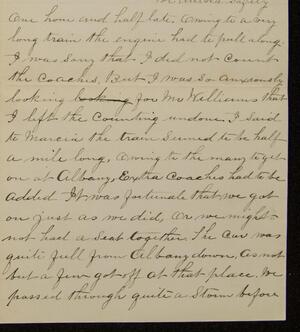 arrived safely
One hour and half late. Owing to a very
long train the engine had to pull along.
I was sorry that I did not count
the Coaches, But I was so anxiously
looking looking for Mr Williams that
I left the Counting undone, I said
to Marcia the train seemed to be half
a mile long, Owing to the many to get
on at Albany, Extra Coaches had to be
added It was fortunate that we got
on just as we did, or we might
not had a seat together, The Car was
quite full from Albany down, as not
but a few got off at that place. We
passed through quite a Storm before